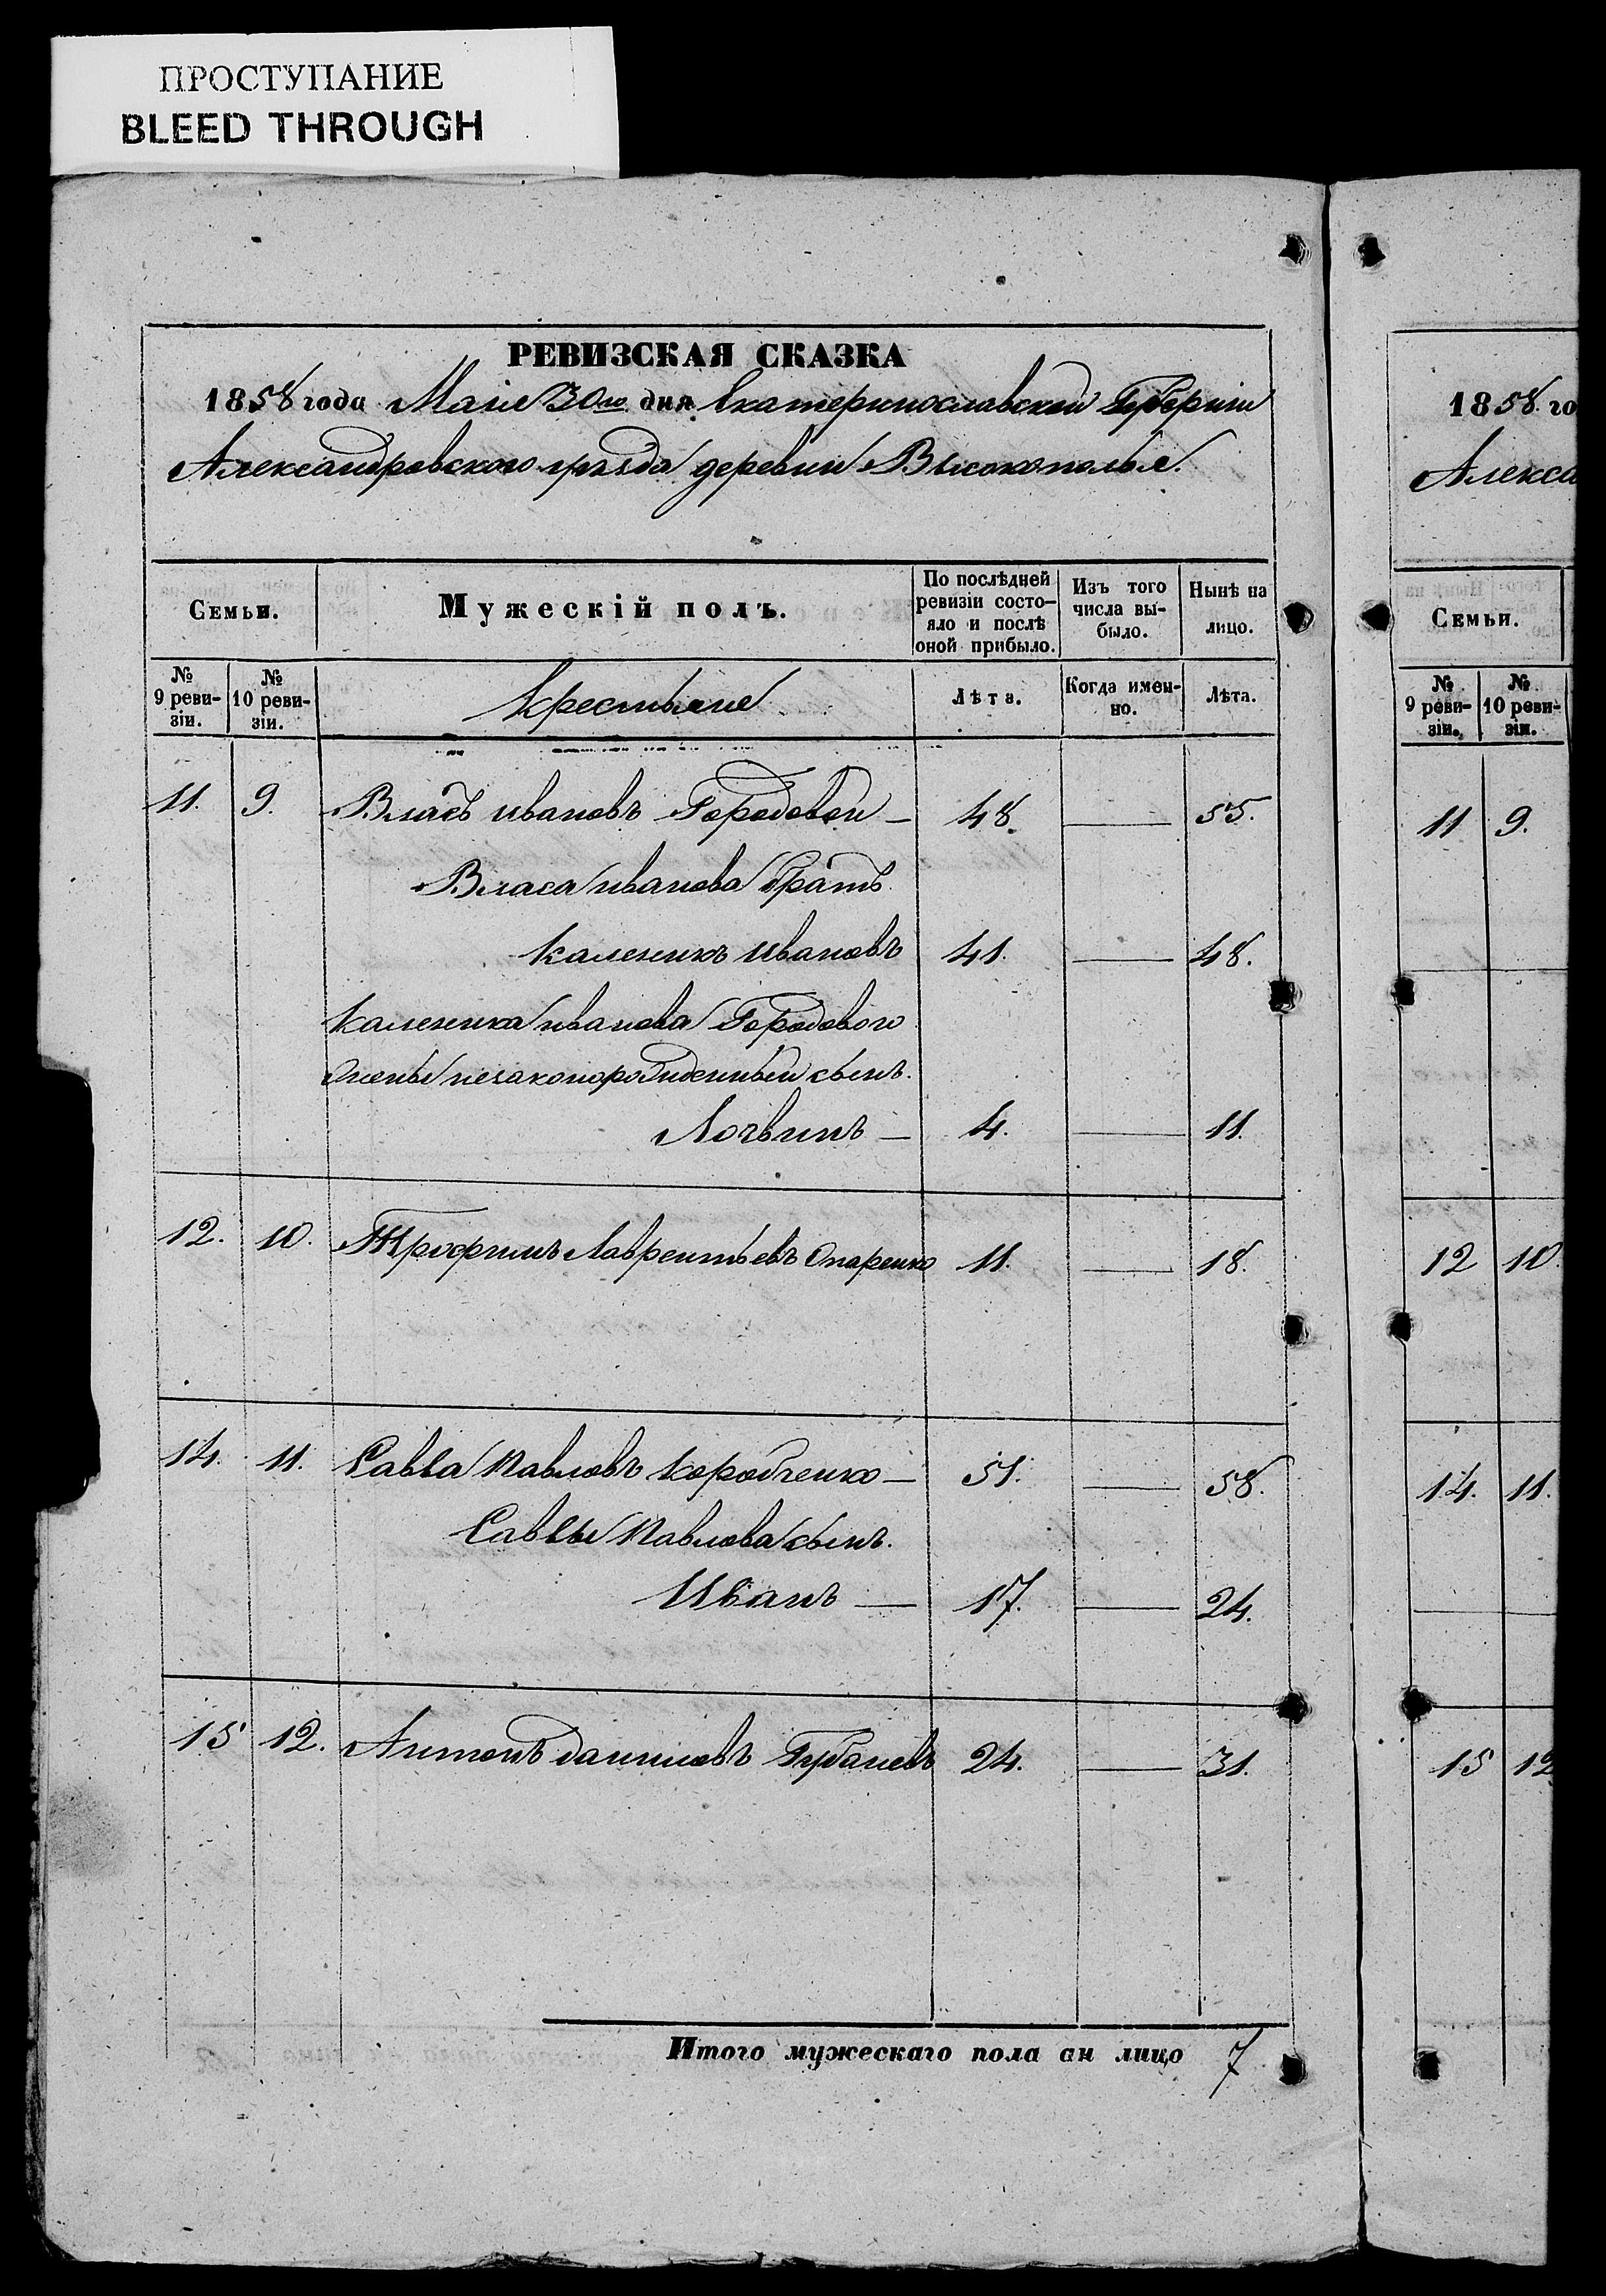 ПРОСТУПАНИЕ
BLEED THROUGH
РЕВИЗСКАЯ СКАЗКА
1858 года Маія 30го дня Екатеринославской Губерніи
Александровскаго уѣзда деревни Высокополья.
Семьи.
Мужескій полъ.
По послѣдней ревизіи состо-
яло и послѣ
оной прибыло.
Изъ того
числа вы-
было.
Нынѣ на
лицо.
№
9 реви-
зіи.
№
10 реви-
зіи.
Крестьяне
Лѣта.
Когда имен-
но.
Лѣта.
11. 9. Власъ Ивановъ Городовой — 48. — 55.
Власа Иванова братъ
Каленикъ Ивановъ 41. — 48.
Каленика Иванова Городового
жены незаконорожденный сынъ.
Логвинъ — 4. — 11.
12. 10. Трофимъ Лаврентьевъ Опаренко 11. — 18.
14. 11. Савва Павловъ Коробченко — 51. — 58.
Саввы Павлова сынъ.
Иванъ — 17. — 24.
15 12. Антонъ Даниловъ Губаневъ 24. — 31.
Итого мужескаго пола ан лицо 7
1858. го
Алекса
Семьи.
№
9 реви-
зіи.
№
10 реви-
зіи.
11 9.
12 10.
14. 11.
15 12